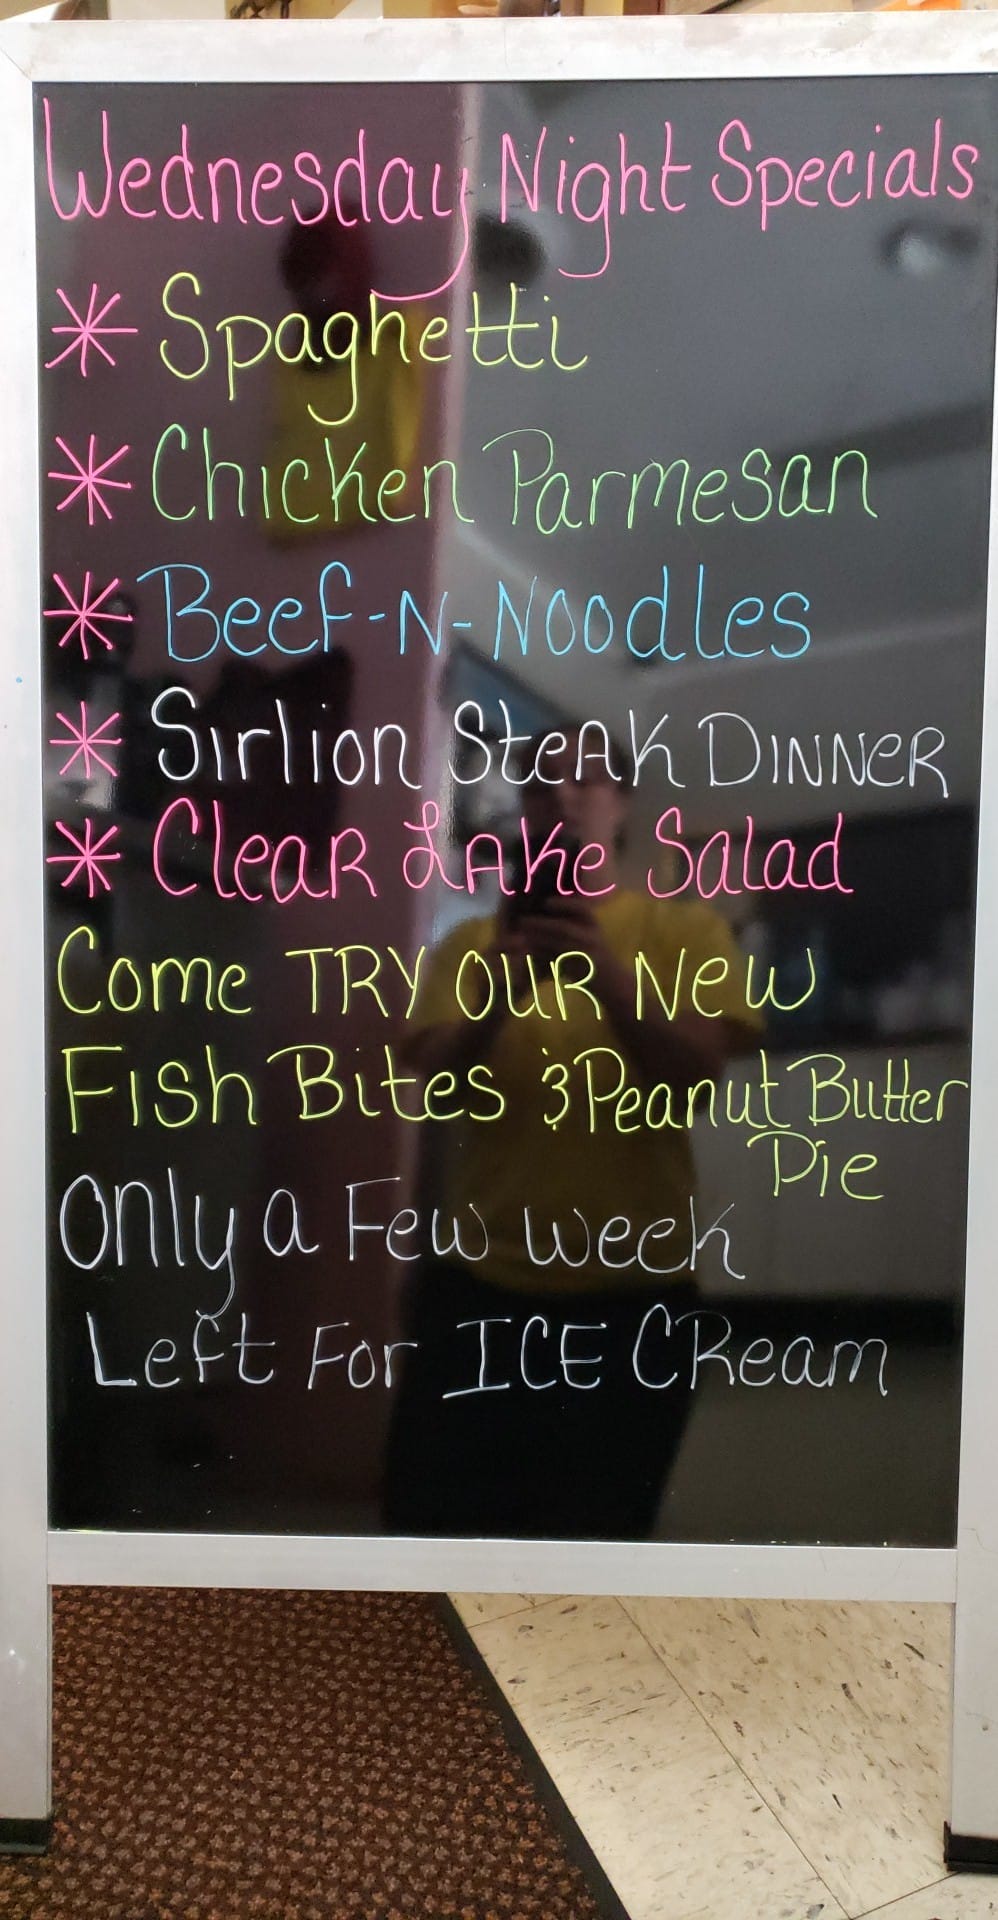 Wednesday Night Specials
* Spaghetti
* Chicken Parmesan
* Beef-N-Noodles
* Sirlion Steak Dinner
* Clear Lake Salad
Come TRY OUR New
Fish Bites & Peanut Butter
Pie
Only a Few week
Left For ICE CReam